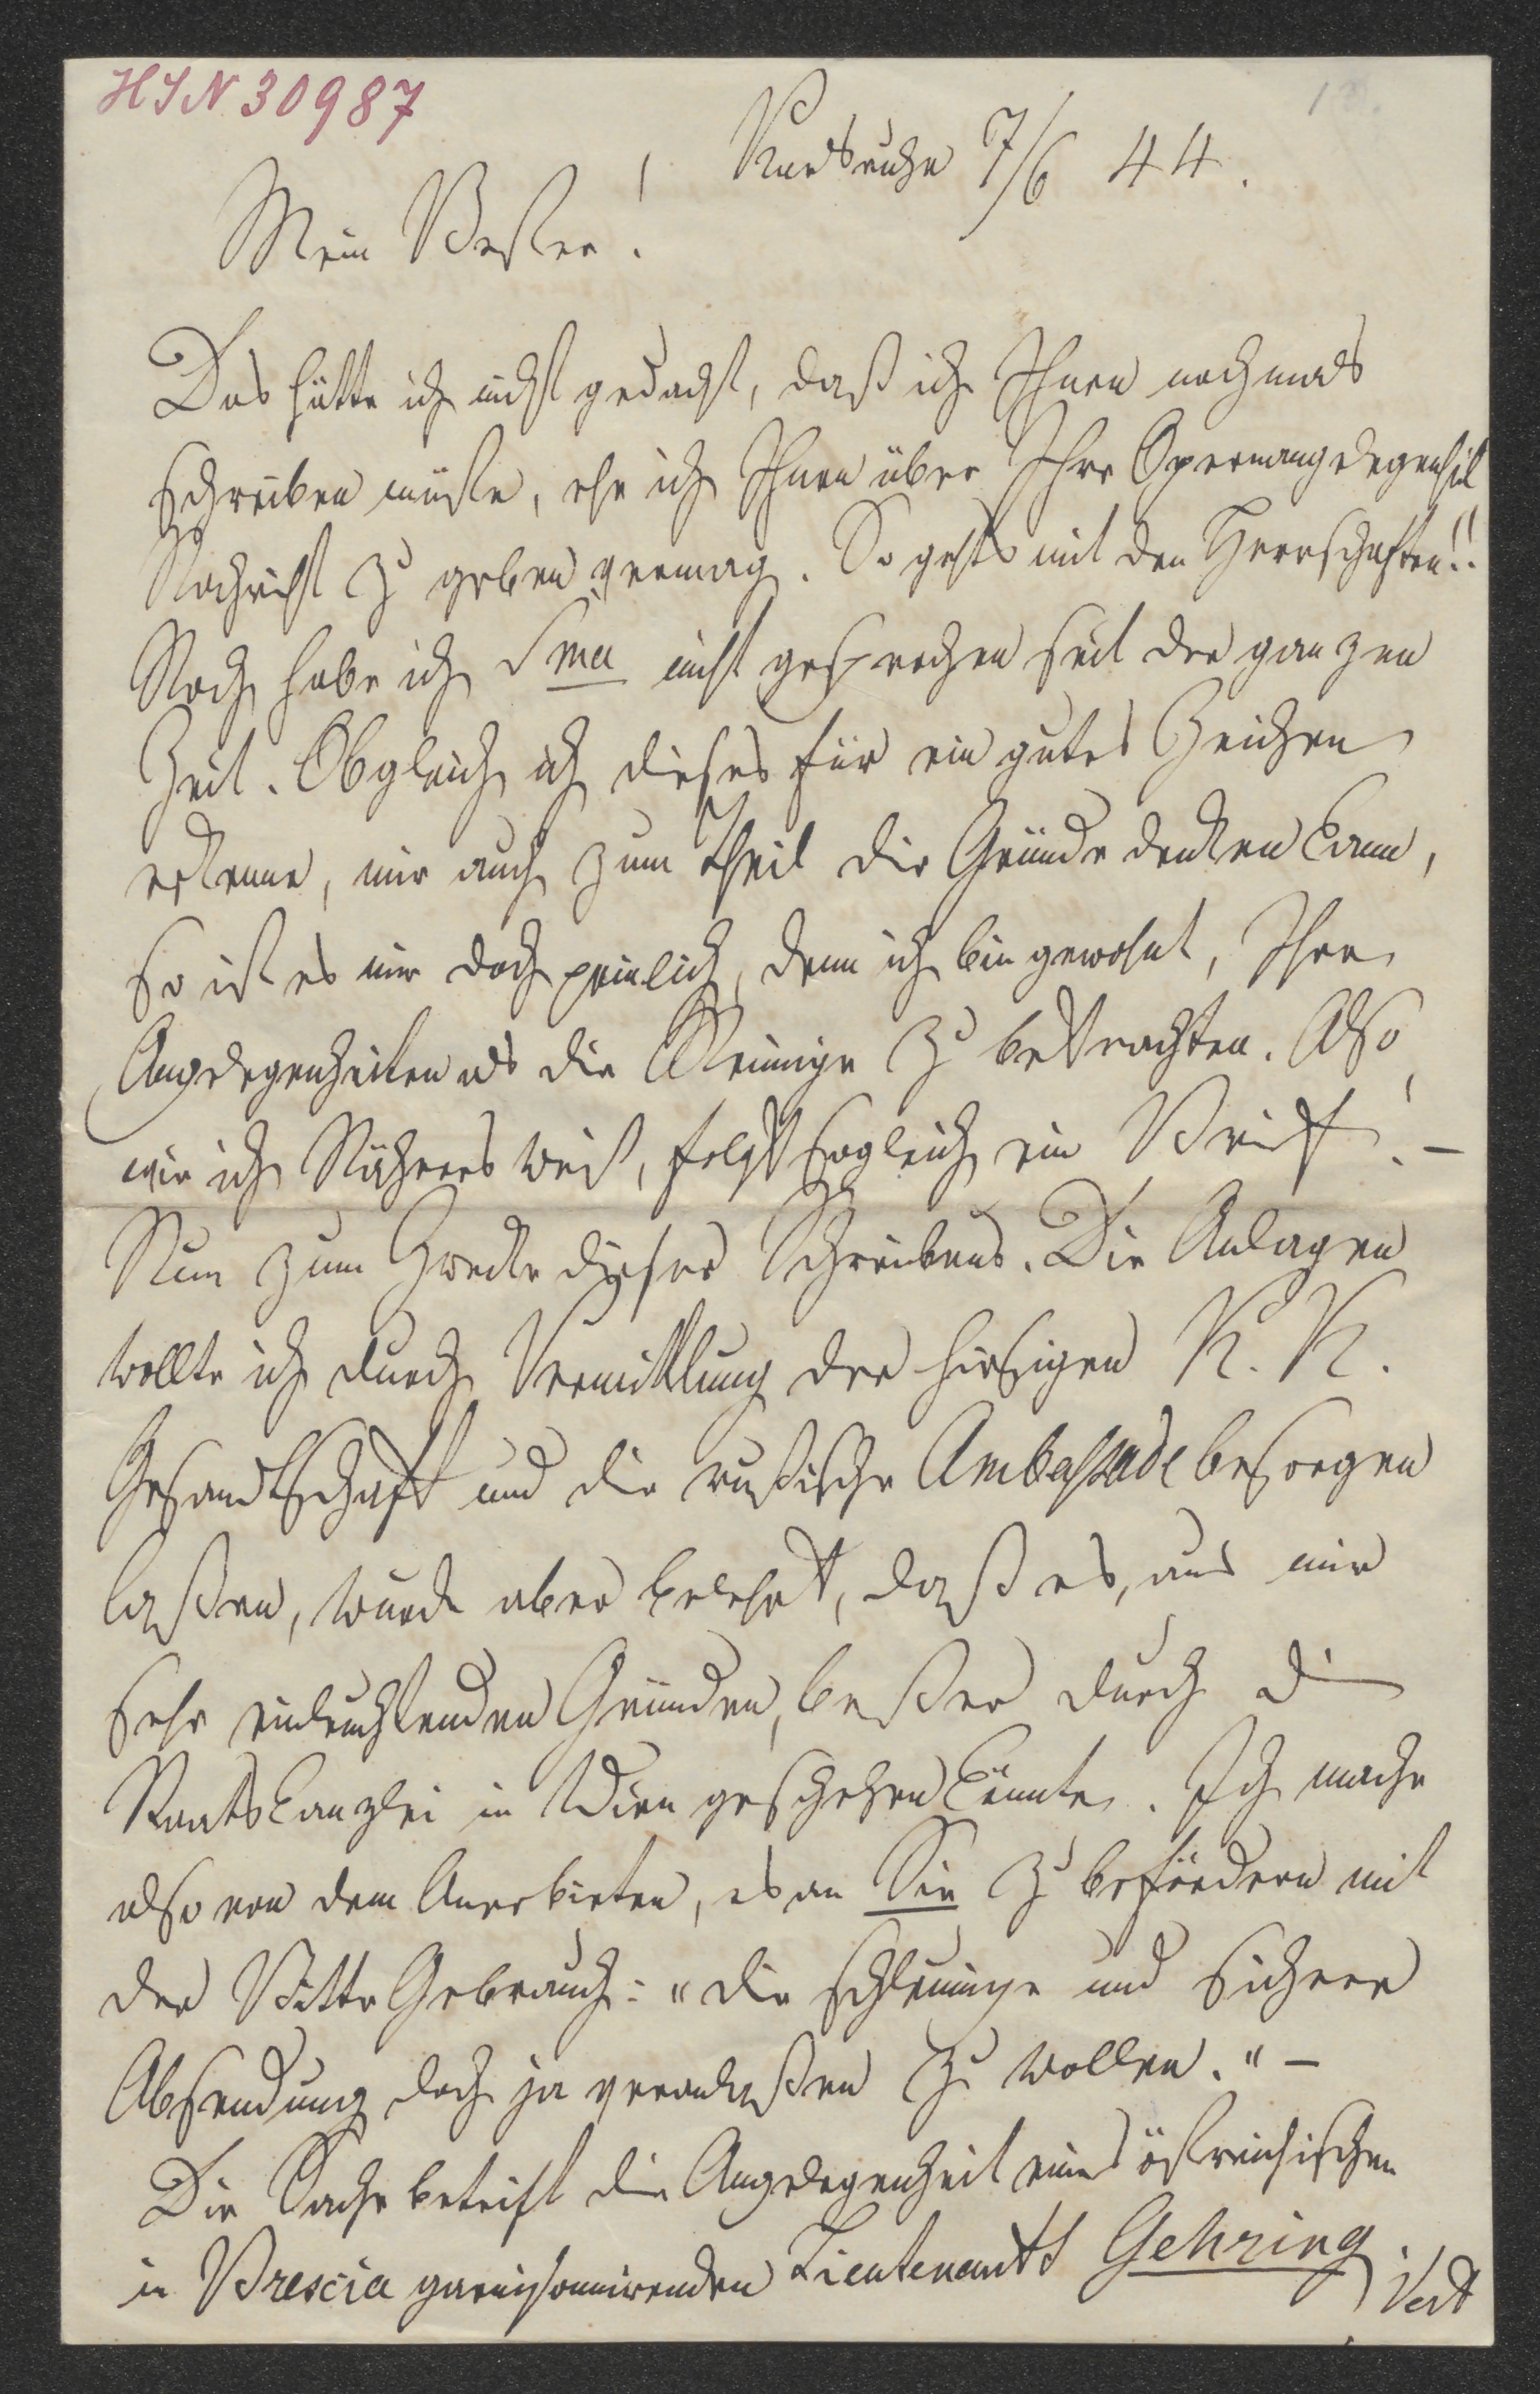 HIN 30987
10.
Karlsruhe 7/6 44.
Mein Bester!
Das hätte ich nicht gedacht, daß ich Ihnen nochmals
schreiben müßte, ehe ich Ihnen über Ihre Opernangelegenheit
Nachricht zu geben vermag. So gehts mit den Herrschaften!!
Noch habe ich Sma nicht gesprochen seit der ganzen
Zeit. Obgleich ich dieses für ein gutes Zeichen
erkenne, mir auch zum Theil die Gründe denken kann,
so ist es mir doch peinlich, denn ich bin gewohnt, Ihre
Angelegenheiten als die Meinige zu betrachten. Also
wie ich Näheres weiß, folgt sogleich ein Brief! –
Nun zum Zwecke dieses Schreibens. Die Anlagen
wollte ich durch Vermittlung der hiesigen K. K.
Gesandtschaft und die rußische Ambassade besorgen
laßen, wurde aber belehrt, daß es, aus mir
sehr einleuchtenden Gründen, beßer durch die
Staatskanzlei in Wien geschehen könnte. Ich mache
also von dem Anerbieten, es an Sie zu befördern mit
der Bitte Gebrauch: "die schleunige und sichere
Absendung doch ja veranlaßen zu wollen." –
Die Sache betrift die Angelegenheit eines östreichischen
in Brescia garnisonnirenden Lieutenants Gehring.
Vert